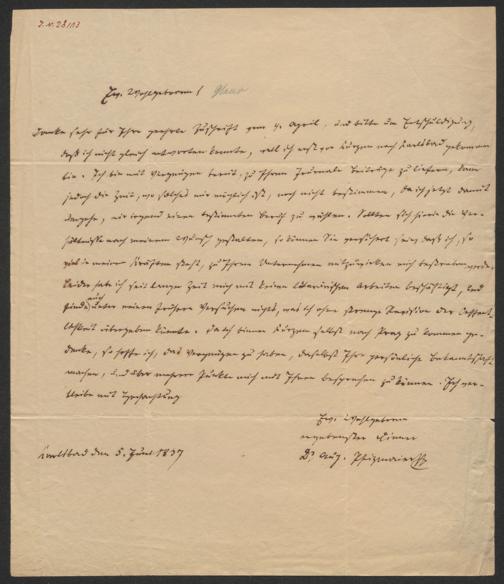 I. N. 28113
Ew. Wohlgeboren! Glaser
Danke sehr für Ihre geehrte Zuschrift vom 4. April, und bitte um Entschuldigung,
daß ich nicht gleich antworten konnte, weil ich erst vor Kurzem nach Karlsbad gekommen
bin. Ich bin mit Vergnügen bereit, zu Ihrem Journale Beiträge zu liefern, kann
jedoch die Zeit, wo solches mir möglich ist, noch nicht bestimmen, da ich jetzt damit
umgehe, mir irgend einen bestimmten Beruf zu wählen. Sollten sich hierin die Ver-
hältnisse nach meinem Wunsch gestalten, so können Sie versichert seyn, daß ich, so
viel in meinen Kräften steht, zu Ihrem Unternehmen mitzuwirken mich bestreben werde.
Leider habe ich seit langer Zeit mich mit keinen literarischen Arbeiten beschäftigt, und
finde auch unter meinen früheren Versuchen nichts, was ich ohne strenge Revision der Oeffent-
lichkeit übergeben könnte. Da ich binnen Kurzem selbst nach Prag zu kommen ge-
denke, so hoffe ich, das Vergnügen zu haben, daselbst Ihre persönliche Bekanntschaft
machen, und über mehrere Punkte mich mit Ihnen besprechen zu können. Ich ver-
bleibe mit Hochachtung
Ew. Wohlgeboren
ergebenster Diener
Dr Aug. Pfizmaier
Karlsbad den 5. Juni 1837